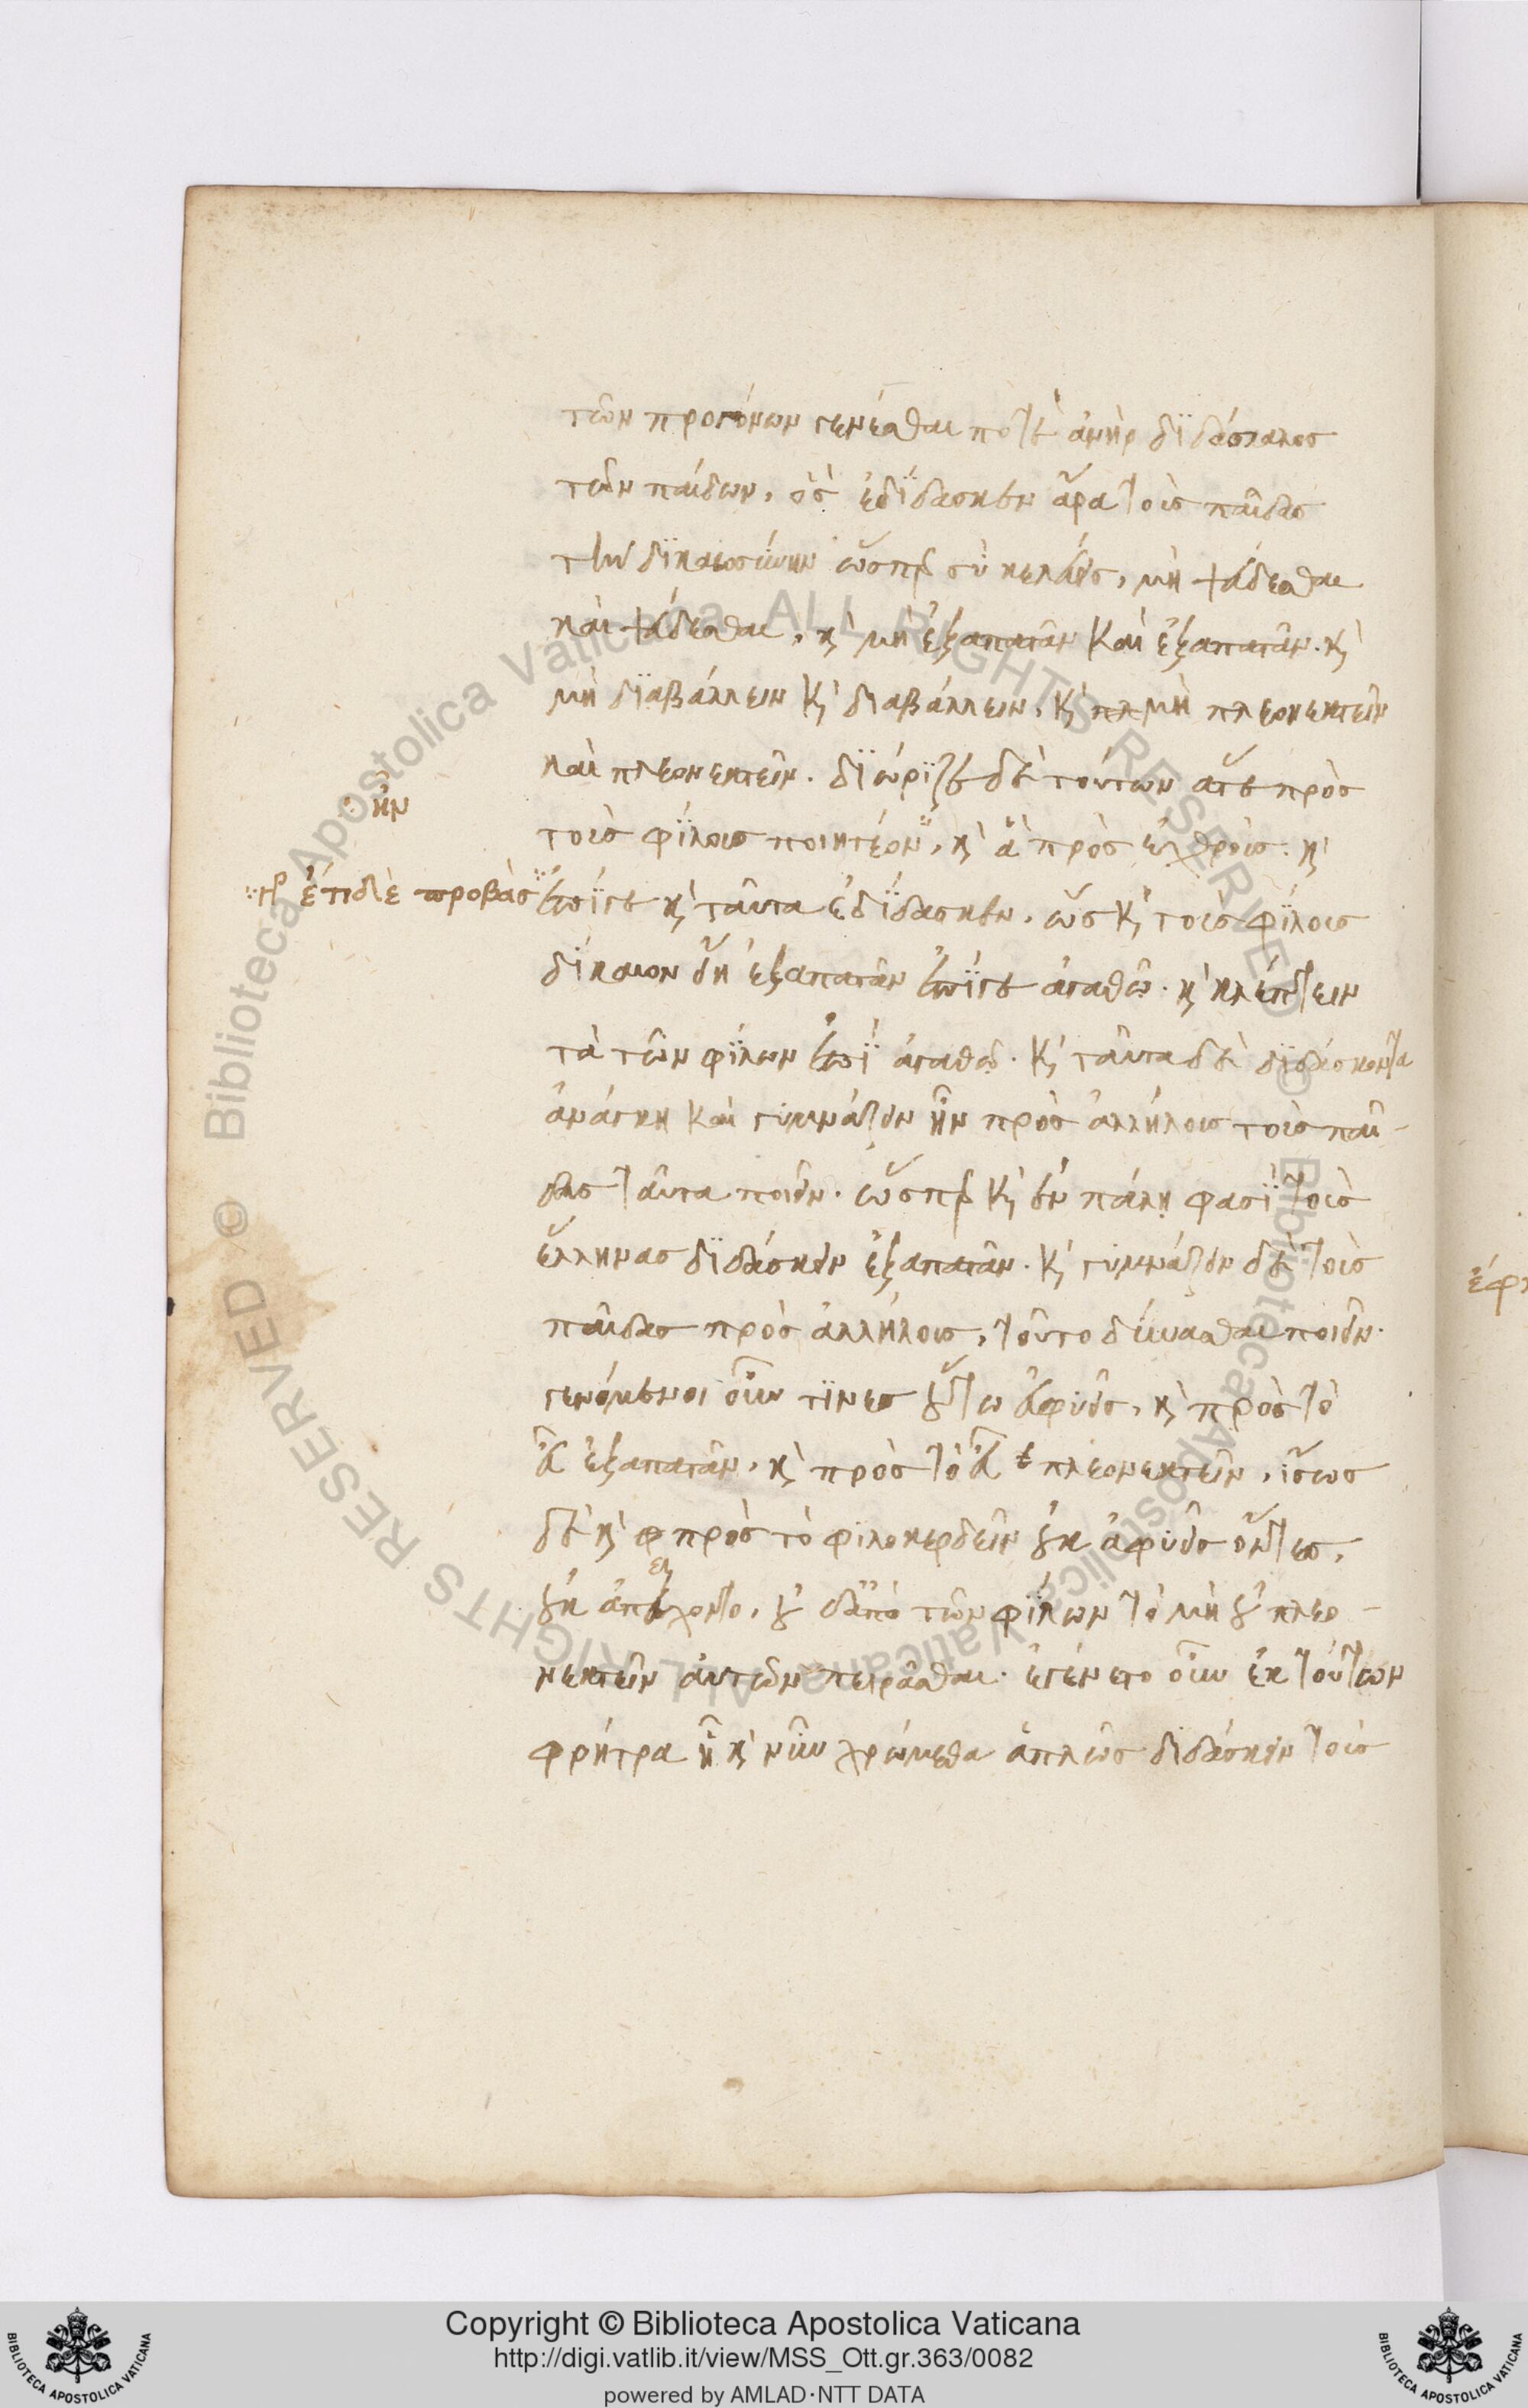 τῶν προγόνων γενέσθαι ποτὲ ἀνὴρ διδάσκαλος
τῶν παίδων, ὃς ἐδίδασκεν ἄρα τοὺς παῖδας
τὴν δικαιοσύνην ὥσπερ σὺ κελεύεις, μὴ ψεύδεσθαι
καὶ ψεύδεσθαι, κ̀ μὴ ἐξαπατᾶν καὶ ἐξαπατᾶν. κ̀
μὴ διαβάλλειν κ̀ διαβάλλειν, κ̀ πλ μὴ πλεονεκτεῖν
καὶ πλεονεκτεῖν. διώριζε δὲ τούτων ἅτε πρὸς
τοὺς φίλους ποιητέον, κ̀ ἃ πρὸς ἐχθρούς. κ̀
ἦν
ἔτι δὲ προβὰς
ἐπίγε κ̀ ταῦτα ἐδίδασκεν, ὡς κ̀ τοὺς φίλους
δίκαιον εἴη ἐξαπατᾶν ἐπίγε ἀγαθῷ. κ̀ κλέπτειν
τὰ τῶν φίλων ἐπὶ ἀγαθῷ. κ̀ ταῦτα δὲ διδάσκοντα
ἀνάγκη καὶ γυμνάζειν ἦν πρὸς ἀλλήλους τοὺς παῖ-
δας ταῦτα ποιεῖν. ὥσπερ κ̀ ἐν πάλῃ φασὶ τοὺς
ἕλληνας διδάσκειν ἐξαπατᾶν. κ̀ γυμνάζειν δὲ τοὺς
παῖδας πρὸς ἀλλήλους, τοῦτο δύνασθαι ποιεῖν.
γενόμενοι οὖν τινες οὕτω εὐφυεῖς, κ̀ πρὸς τὸ
εὖ ἐξαπατᾶν, κ̀ πρὸς τὸ εὖ πλεονεκτεῖν, ἴσως
δὲ κ̀ φ πρὸς τὸ φιλοκερδεῖν οὐκ ἀφυεῖς ὄντες,
οὐκ ἀπείχοντο, οὐδ' ἀπὸ τῶν φίλων τὸ μὴ οὐ πλεο-
νεκτεῖν αὐτῶν πειρᾶσθαι. ἐγένετο οὖν ἐκ τούτων
φρήτρα ᾗ κ̀ νῦν χρώμεθα ἁπλῶς διδάσκειν τοὺς
Copyright © Biblioteca Apostolica Vaticana
http://digi.vatlib.it/view/MSS_Ott.gr.363/0082
powered by AMLAD·NTT DATA